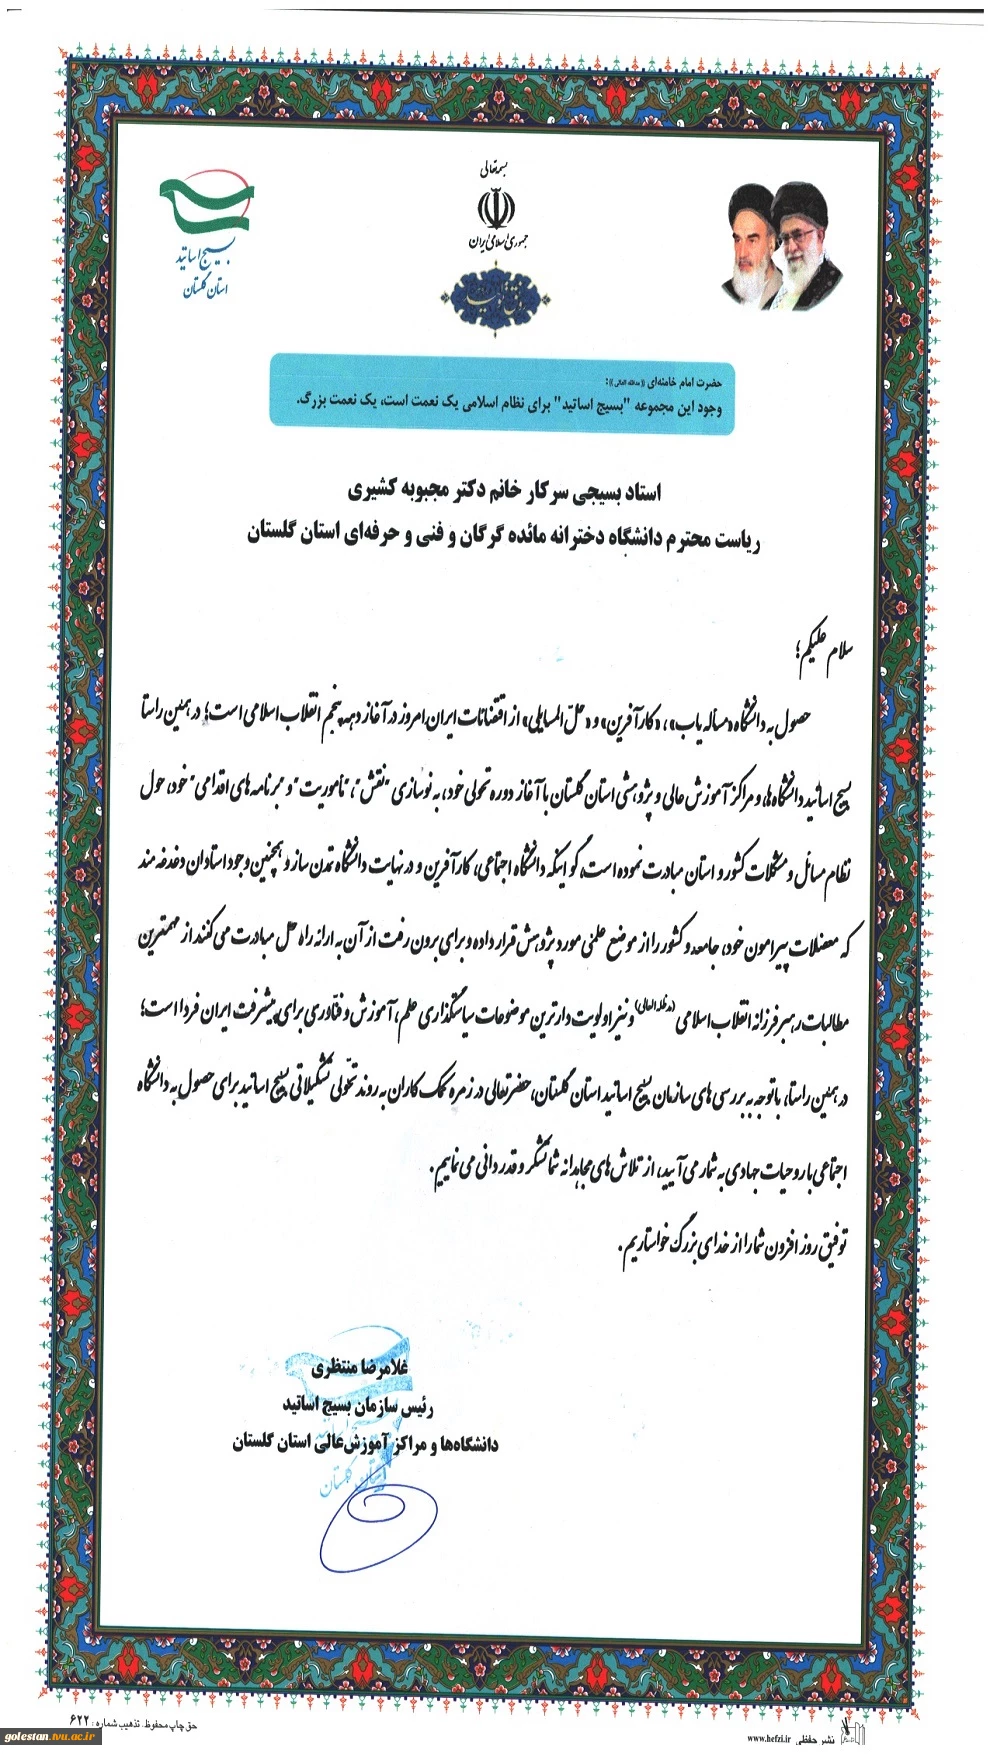 بسمه‌تعالی
جمهوری اسلامی ایران
بسیج اساتید
استان گلستان
حضرت امام خامنه‌ای ((مدظله العالی)):
وجود این مجموعه "بسیج اساتید" برای نظام اسلامی یک نعمت است، یک نعمت بزرگ.
استاد بسیجی سرکار خانم دکتر محبوبه کشیری
ریاست محترم دانشگاه دخترانه مائده گرگان و فنی و حرفه‌ای استان گلستان
سلام علیکم؛
حصول به دانشگاه «مساله یاب»، «کارآفرین» و «حلّ المسایلی» از اقتضائات ایران امروز در آغاز دهه پنجم انقلاب اسلامی است؛ در همین راستا
بسیج اساتید دانشگاه ها و مراکز آموزش عالی و پژوهشی استان گلستان با آغاز دوره تحولی خود، به نوسازی "نقش"، "مأموریت" و "برنامه های اقدامی" خود، حول
نظام مسائل و مشکلات کشور و استان مبادرت نموده است، گو اینکه دانشگاه اجتماعی، کارآفرین و در نهایت دانشگاه تمدن ساز و همچنین وجود استادان دغدغه مند
که معضلات پیرامون خود، جامعه و کشور را از موضع علمی مورد پژوهش قرار داده و برای برون رفت از آن به ارائه راه حل مبادرت می کنند از مهمترین
مطالبات رهبر فرزانه انقلاب اسلامی (مدظله العالی) و نیز اولویت دارترین موضوعات سیاستگذاری علم، آموزش و فناوری برای پیشرفت ایران فردا است؛
در همین راستا، باتوجه به بررسی های سازمان بسیج اساتید استان گلستان، حضرتعالی در زمره کمک کاران به روند تحّولی تشکیلاتی بسیج اساتید برای حصول به دانشگاه
اجتماعی با روحیات جهادی به شمار می آیید، از تلاش های مجاهدانه شما تشکر و قدردانی می نماییم.
توفیق روز افزون شما را از خدای بزرگ خواستاریم.
غلامرضا منتظری
رئیس سازمان بسیج اساتید
دانشگاه‌ها و مراکز آموزش‌عالی استان گلستان
استان گلستان
حق چاپ محفوظ. تذهیب شماره: ۶۲۲
نشر حفظی www.hefzi.ir
golestan.tvu.ac.ir